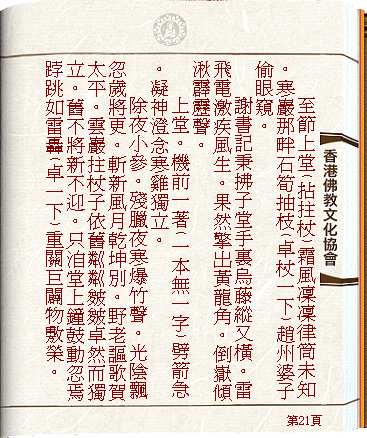 至節上堂(拈拄杖)霜風凜凜律筒未知
。寒巖那畔石筍抽枝(卓杖一下)趙州婆子
偷眼窺。
謝書記秉拂子堂手裏烏藤縱又橫。雷
飛電激疾風生。果然擎出黃龍角。倒嶽傾
湫霹靂聲。
上堂。機前一著(一本無一字)劈箭急
。凝神澄念寒雞獨立。
除夜小參。殘臘夜寒爆竹聲。光陰飄
忽歲將更。斬新風月乾坤別。野老謳歌賀
太平。雲巖拄杖子依舊鄰鄰皴皴卓然而獨
立。舊不將新不迎。只洎堂上鐘鼓動忽焉
踍跳如雷轟(卓一下)重關巨闢物敷榮。
香港佛教文化協會
第21頁